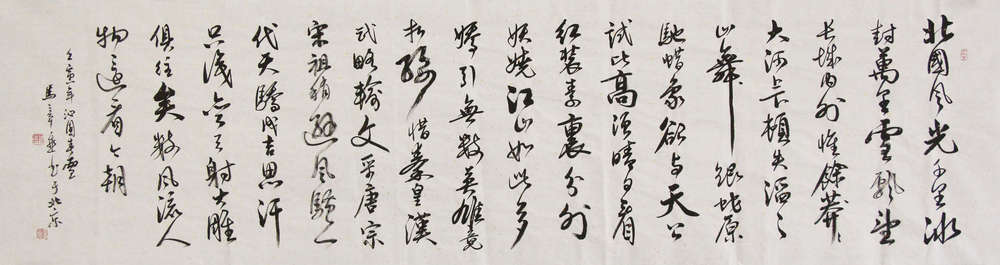 北國风光千里冰
封萬里雪飘望
长城内外惟餘莽〻
大河上下顿失滔〻
山舞银蛇原
馳蜡象欲与天公
试比高须晴日看
红装素裹分外
妖娆江山如此多
嬌引無数英雄竞
折腰惜秦皇漢
武略輸文采唐宗
宋祖稍逊风骚一
代天驕成吉思汗
只识弯弓射大雕
俱往矣数风流人
物還看今朝
壬寅年沁園春雪
馬书于北京